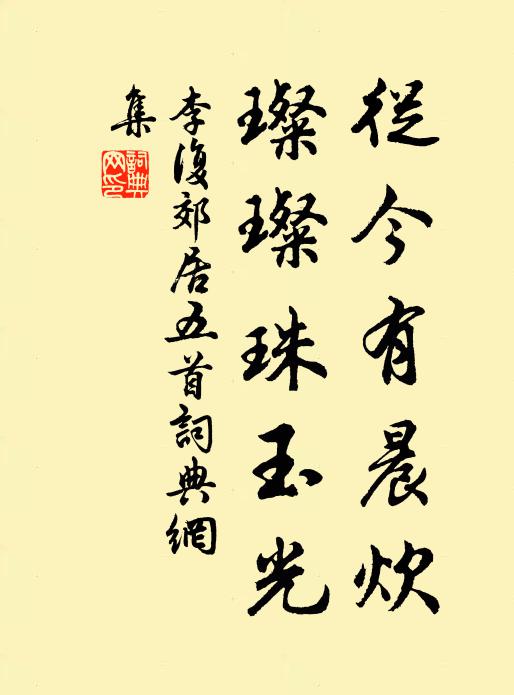 從今有晨炊
璨璨珠玉光
李復郊居五首詞典網
集
詞典
网印